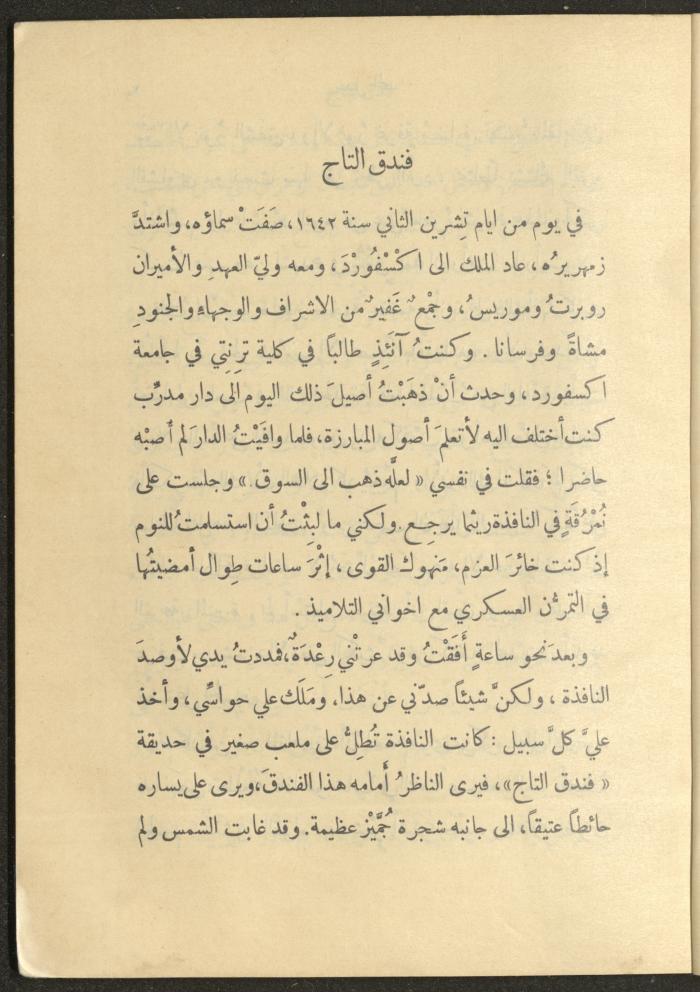 فندق التاج
في يوم من ايام تِشرين الثاني سنة ١٦٤٢، صَفَتْ سماؤه، واشتدَّ
زمهريرُه، عاد الملك الى اكْسْفُورْدَ، ومعه وليّ العهدِ والأميران
روبرتُ وموريسُ، وجمْعٌ غَفيرٌ من الاشراف والوجهاءِ والجنودِ
مشاةً وفرسانا. وكنتُ آنَئِذٍ طالبًا في كلية ترِنتي في جامعة
اكسفورد، وحدث أنْ ذهَبْتُ أصيلَ ذلك اليوم الى دار مدرِّب
كنت أختلف اليه لأتعلمَ أصول المبارزة، فلما وافَيْتُ الدارَ لم أصبْه
حاضرا؛ فقلت في نفسي «لعلَّه ذهب الى السوق.» وجلست على
نُمْرُقَةٍ في النافذة ريثما يرجِع. ولكني ما لبِثْتُ أن استسلمتُ للنوم
إذ كنت خائرَ العزم، مَنهوك القوى، إثْرَ ساعات طِوال أمضيتُها
في التمرُّن العسكري مع اخواني التلاميذ.
وبعدَ نحو ساعةٍ أَفَقْتُ وقد عرتْني رِعْدَةٌ، فمددتُ يدي لأوصدَ
النافذة، ولكنَّ شيئاً صدّني عن هذا، ومَلَك علي حواسِّي، وأخذ
عليَّ كلَّ سبيل: كانت النافذة تُطِلُّ على ملعب صغير في حديقة
«فندق التاج»، فيرى الناظرُ أَمامه هذا الفندقَ، ويرى على يساره
حائطاً عتيقاً، الى جانبه شجرة جُمَّيْز عظيمة. وقد غابت الشمس ولم